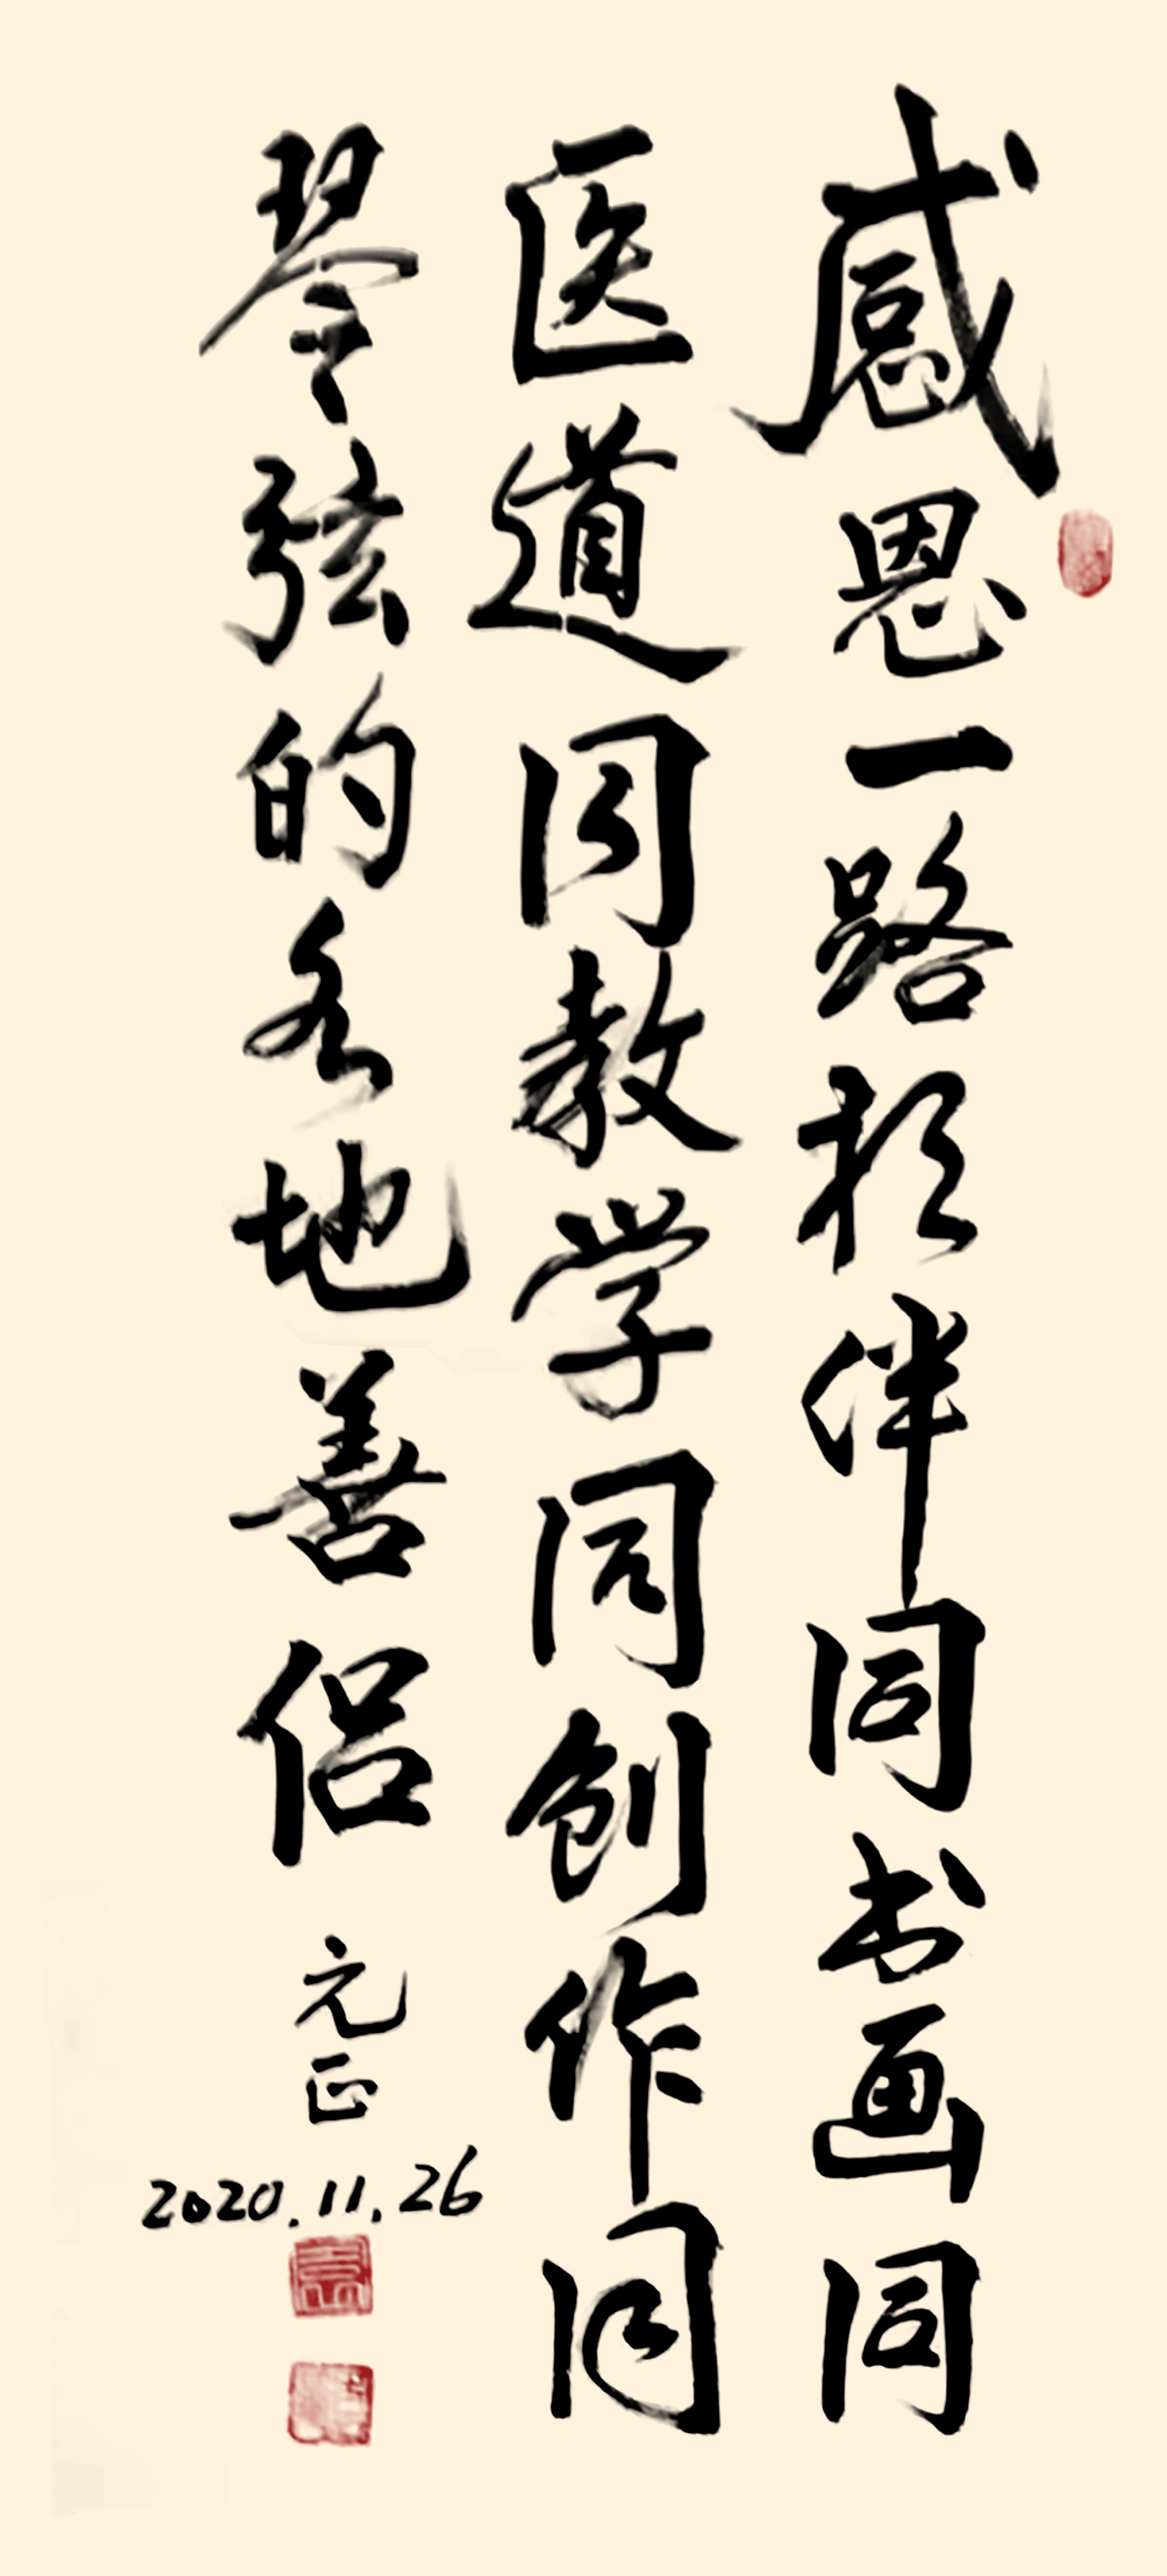 感恩一路相伴同书画同
医道同教学同创作同
琴弦的各地善侣
元正
2020.11.26